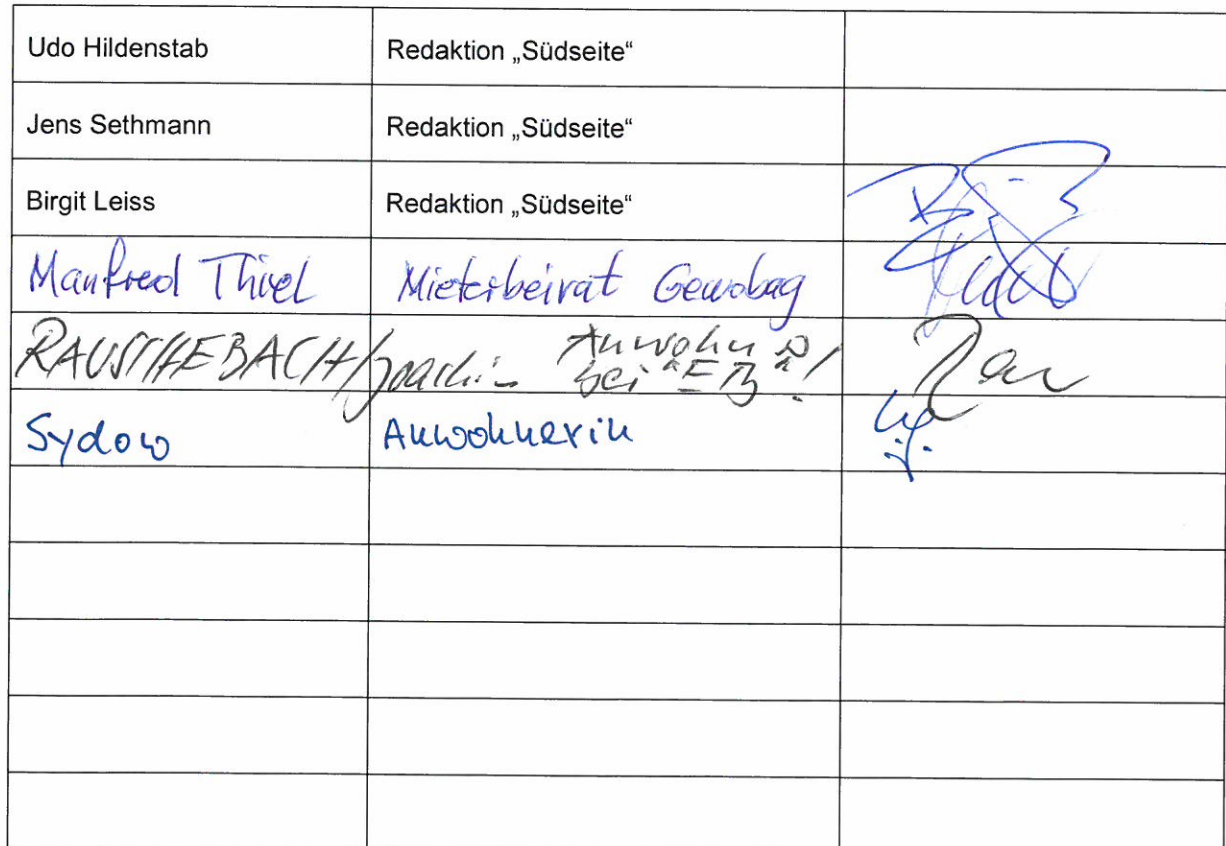 Udo Hildenstab Redaktion „Südseite“
Jens Sethmann Redaktion „Südseite“
Birgit Leiss Redaktion „Südseite“
Manfred Thiel Mieterbeirat Gewobag
Joachim
bei
Sydow Anwohnerin